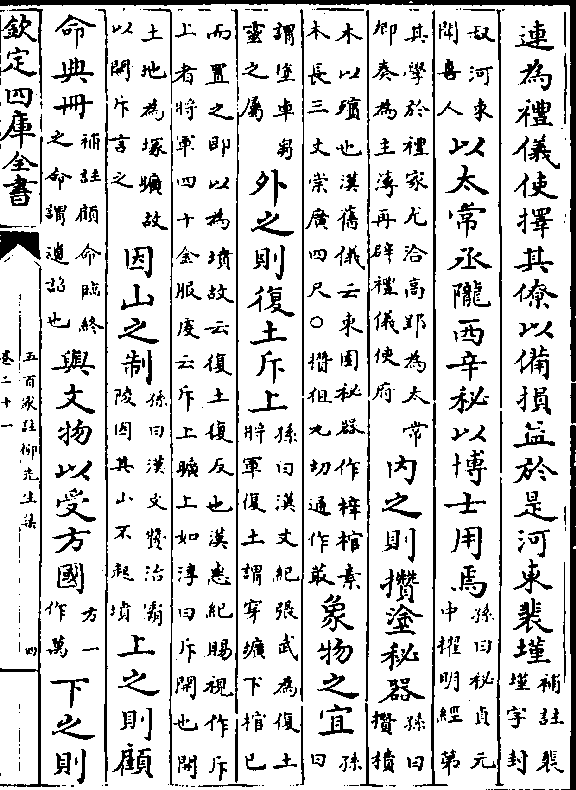 連為禮儀使擇其僚以備損益於是河東裴墐補註裴墐字封
叔河東聞喜人以太常丞隴西辛秘以博士用焉孫曰秘貞元中擢明經第
其學於禮家尤洽高郢為太常卿奏為主簿再辟禮儀使府内之則攢塗秘器孫曰攢攢
木以殯也漢舊儀云東園秘器作梓棺素木長三丈崇廣四尺○攢徂丸切通作菆象物之宜孫曰
謂塗車芻靈之屬外之則復土斥上孫曰漢文紀張武為復土將軍復土謂穿壙下棺已
而置之即以為墳故云復土復反也漢惠紀賜視作斥上者將軍四十金服虔云斥上壙上如淳曰斥開也開
土地為塚壙故以開斥言之因山之制孫曰漢文贊治霸陵因其山不起墳上之則顧
命典冊補註顧命臨終之命謂遺詔也與文物以受方國方一作萬下之則
欽定四庫全書
五百家註柳先生集
卷二十一
四